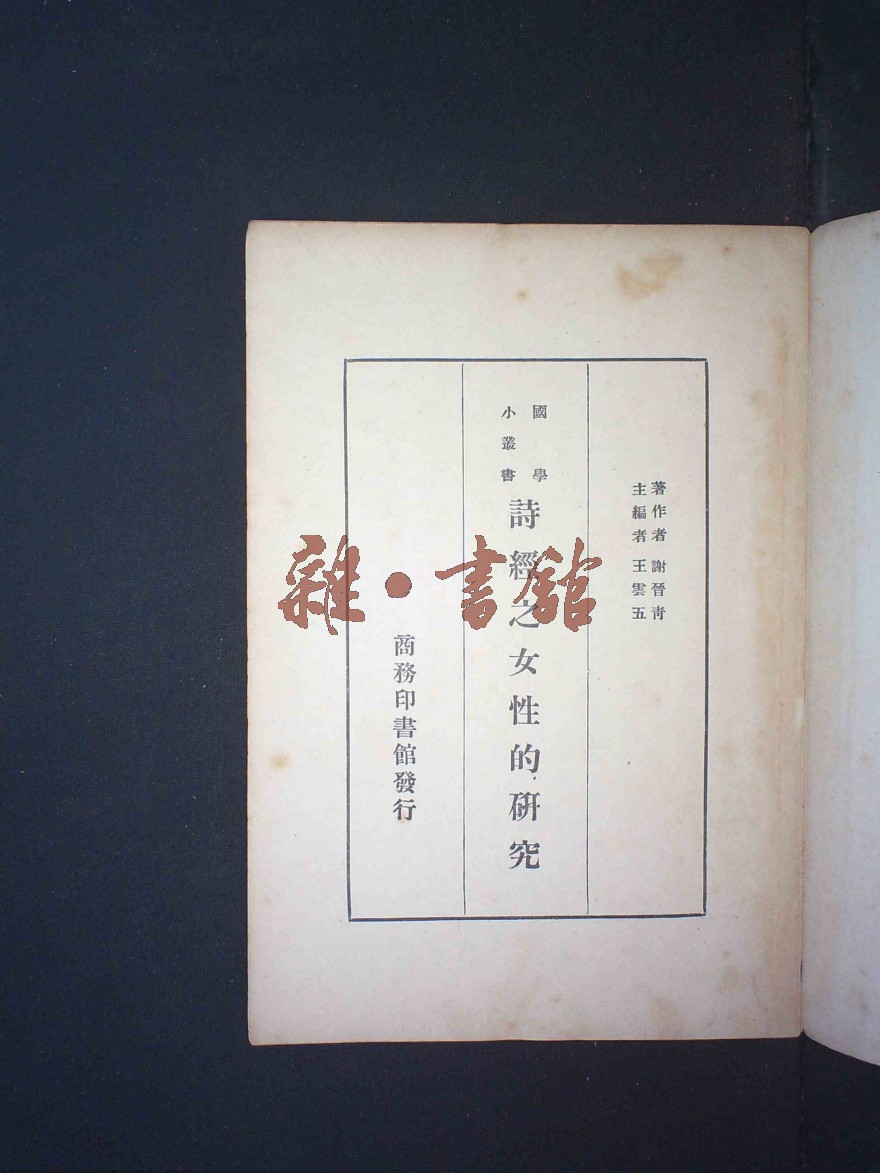 著作者 謝晉青
主編者 王雲五
國學
小叢書
詩經之女性的研究
商務印書館發行
雜·書館